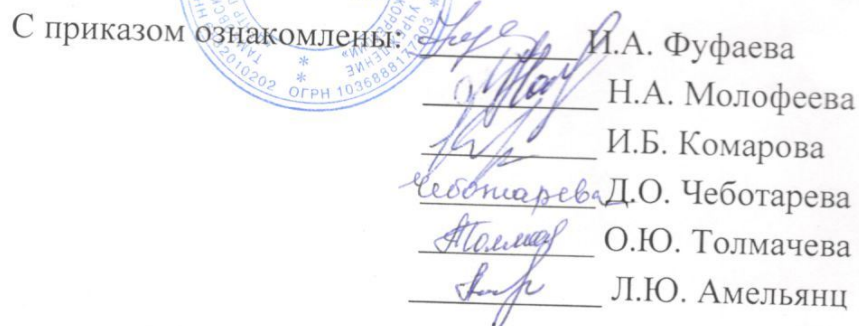 С приказом ознакомлены: И.А. Фуфаева
Н.А. Молофеева
И.Б. Комарова
Чеботарева Д.О. Чеботарева
О.Ю. Толмачева
Л.Ю. Амельянц
ОГРН 1036888177803